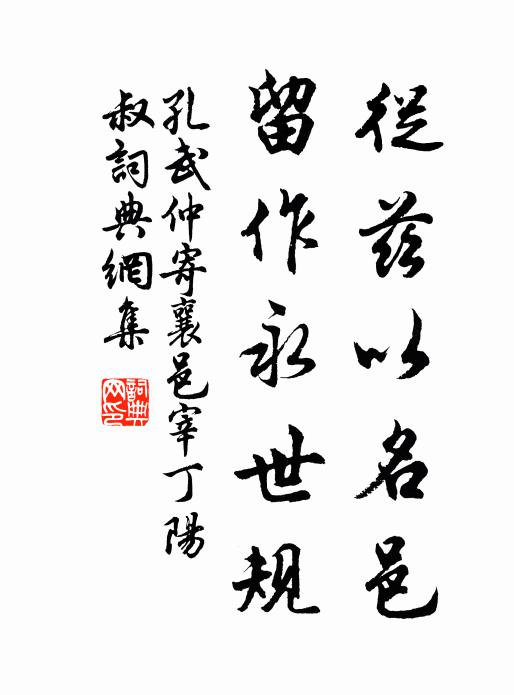 從茲以名邑
留作永世規
孔武仲寄襄邑宰丁陽
叔詞典網集
詞典網印